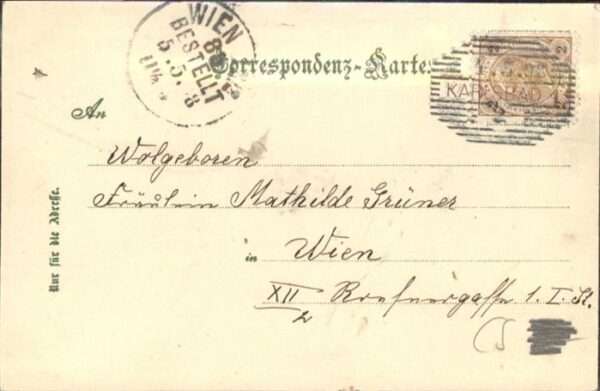 WIEN
BESTELLT
5.5.
Correspondenz-Karte
2 2
KARLSBAD
An
Wolgeboren
Fräulein Mathilde Grüner
in Wien
XII/2 1. I. St.
Nur für die Adresse.